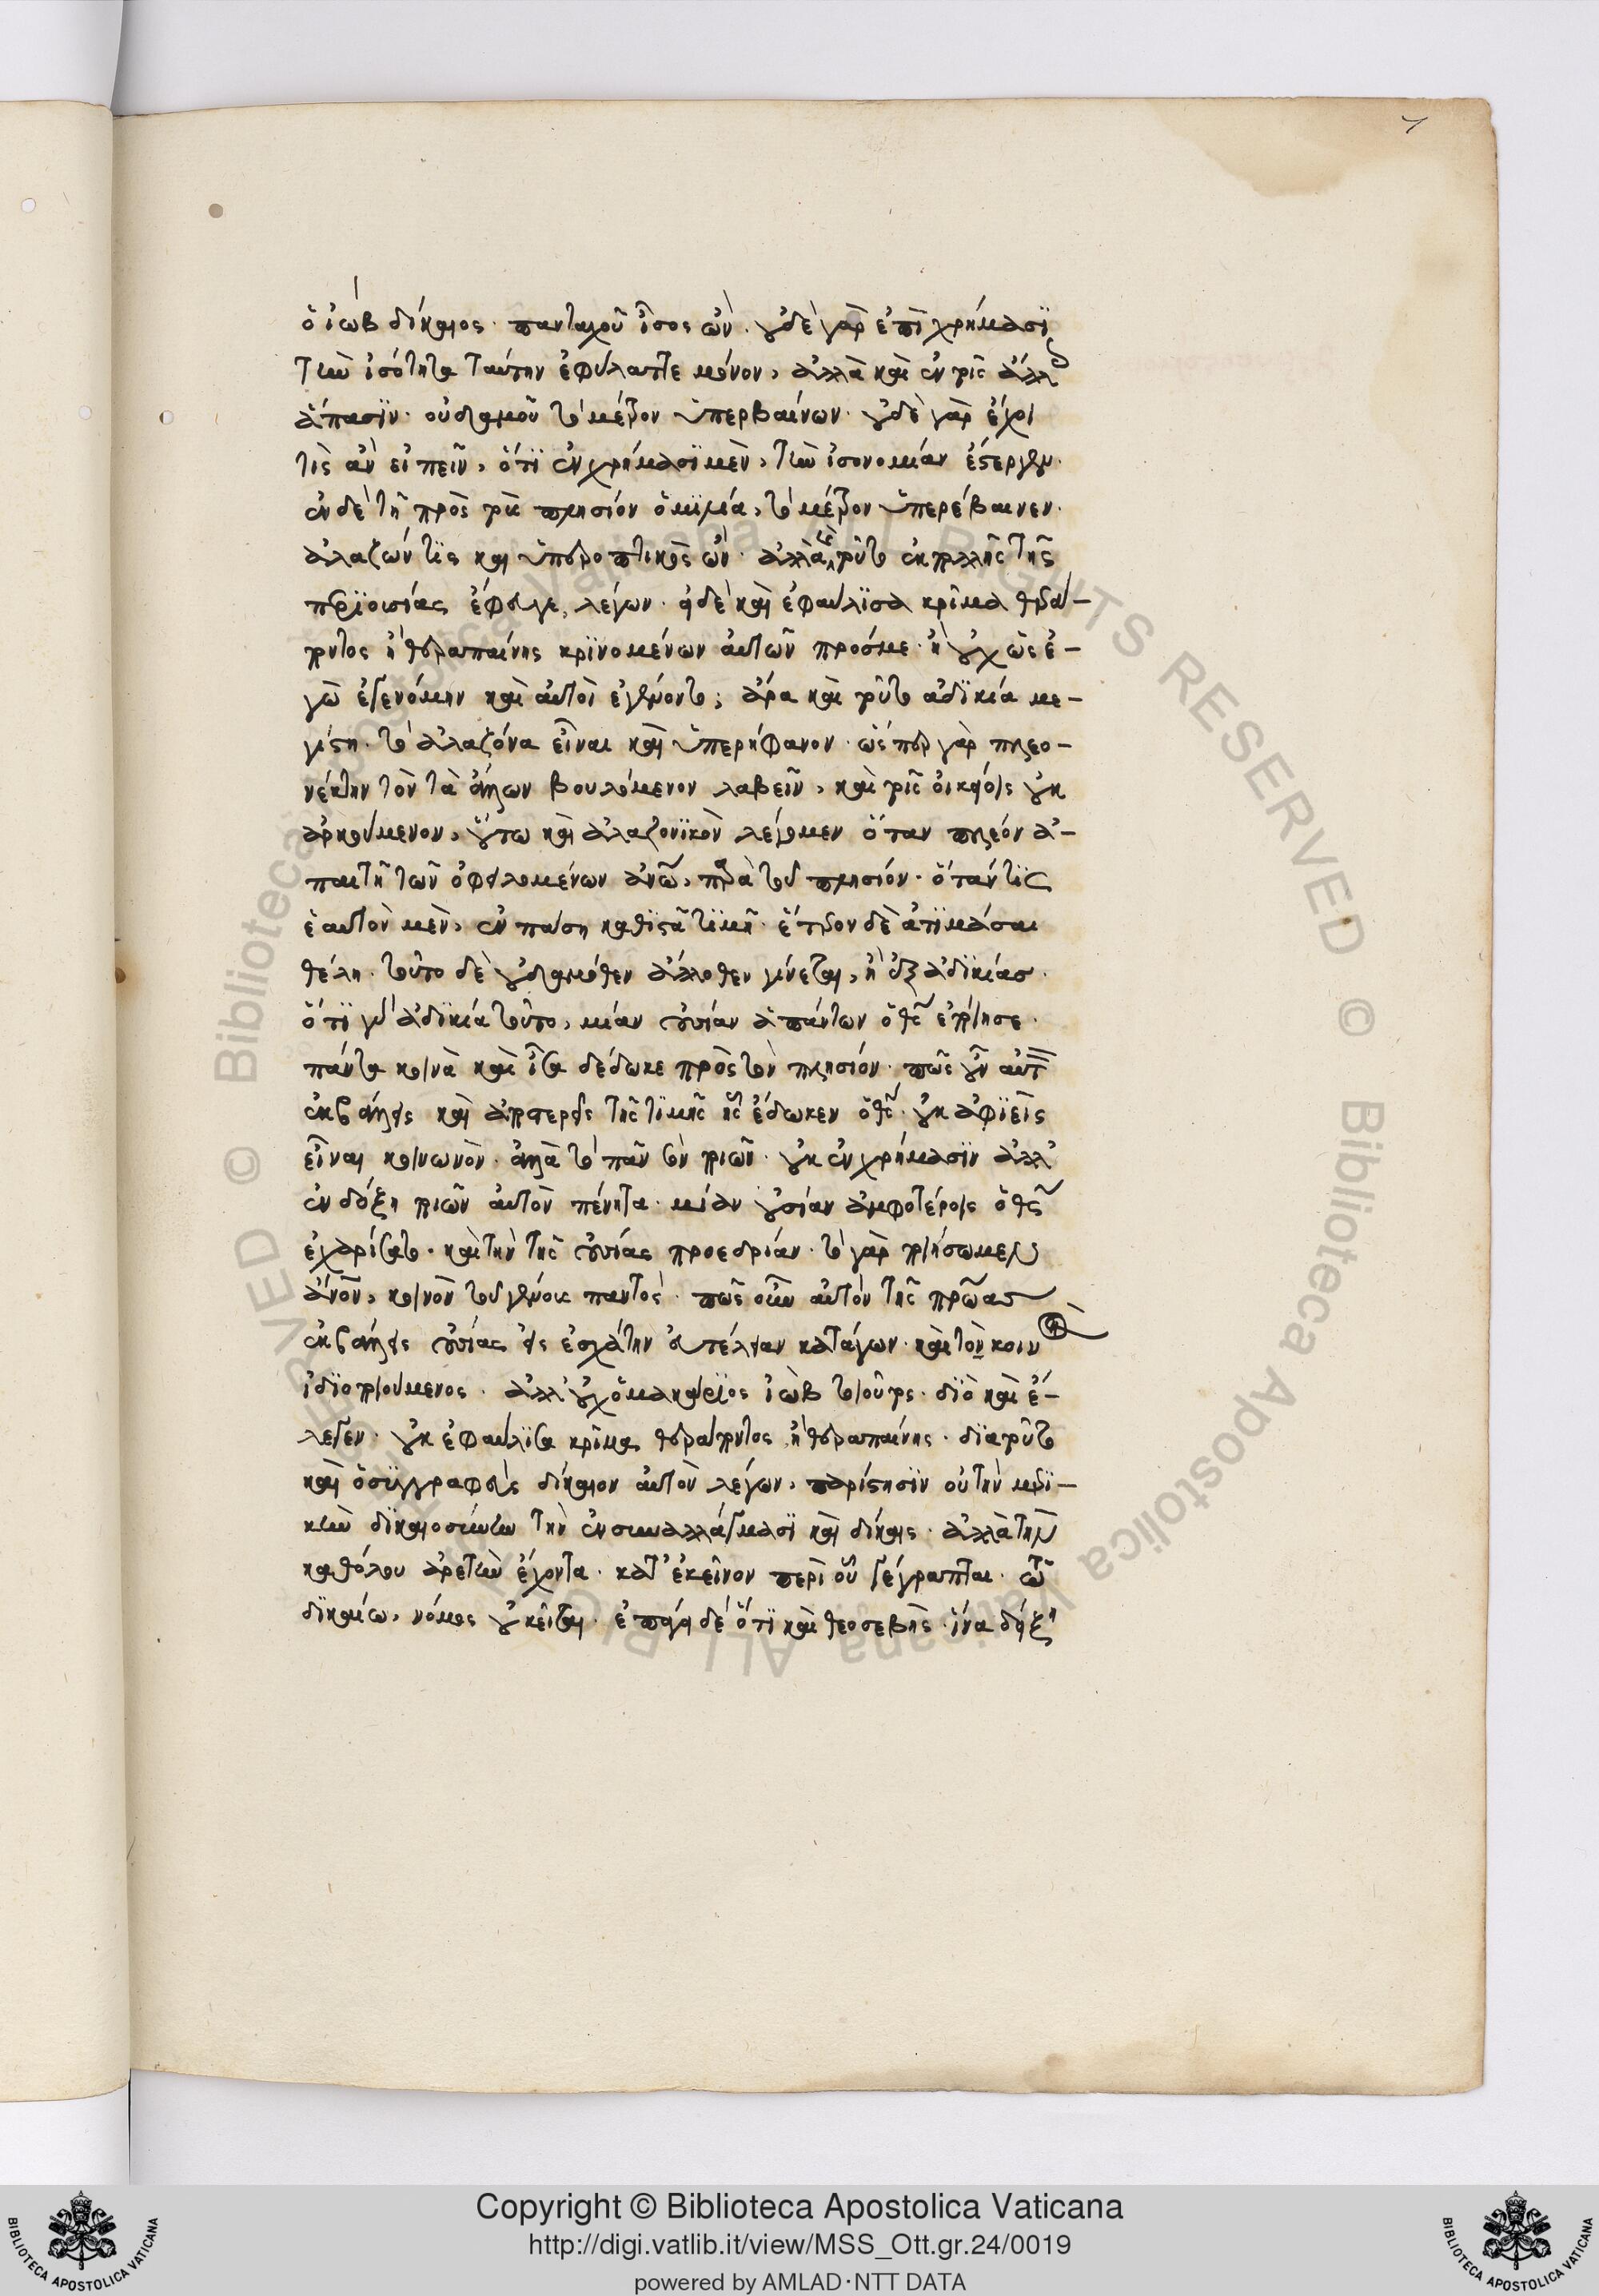 7
ὁ ἰὼβ δίκαιος· πανταχοῦ ἴσος ὤν· οὐδὲ γὰρ ἐπὶ χρήμασϊ
τὴν ἰσότητα ταύτην ἐφύλαττε μόνον, ἀλλὰ καὶ ἐν τοῖς ἄλλοις
ἅπασϊν· οὐδαμοῦ τὸ μέτρον ὑπερβαίνων· οὐδὲ γὰρ ἔχοι
τὶς ἂν εἰπεῖν, ὅτϊ ἐν χρήμασϊ μὲν, τὴν ἰσονομίαν ἔστεργεν·
ἐν δὲ τῆ πρὸς τοὺς πλησίον ὁμϊλία, τὸ μέτρον ὑπερέβαινεν·
ἀλαζών τϊς καὶ ὑπεροπτικὸς ὤν· ἀλλὰ καὶ τοῦτο ἐκ πολλῆς τῆς
περϊουσίας ἔφευγε, λέγων· εἰ δὲ καὶ ἐφαύλϊσα κρῖμα θερά-
ποντος ἢ θεραπαίνης κρϊνομένων αὐτῶν πρός με· ἢ οὐχ ὡς ἐ-
γὼ ἐγενόμην καὶ αὐτοὶ ἐγένοντο; ἄρα καὶ τοῦτο ἀδϊκία με-
γίστη· τὸ ἀλαζόνα εἶναι καὶ ὑπερήφανον· ὥσπερ γὰρ πλεο-
νέκτην τὸν τὰ ἄλλων βουλόμενον λαβεῖν, καὶ τοῖς οἰκείοις οὐκ
ἀρκούμενον, οὕτω καὶ ἀλαζονϊκὸν λέγομεν ὅταν πλέον ἀ-
παιτῆ τῶν ὀφειλομένων ἀνῶ, παρὰ τοῦ πλησίον· ὅταν τϊς
ἑαυτὸν μὲν, ἐν πάση καθϊστᾶ τϊμῆ· ἕτερον δὲ ἀτϊμάσαι
θέλη· τοῦτο δὲ οὐδαμόθεν ἄλλοθεν γίνεται, ἢ ἐξ ἀδϊκίας·
ὅτϊ γὰρ ἀδϊκία τοῦτο, μίαν οὐσίαν ἁπάντων ὁ θς ἐποίησε·
πάντα κοινὰ καὶ ἴσα δέδωκε πρὸς τὸν πλησίον· πῶς οὖν αὐτὸν
ἐκβάλλεις καὶ ἀποστερεῖς τῆς τϊμῆς ἧς ἔδωκεν ὁ θς· οὐκ ἀφϊεὶς
εἶναι κοινωνὸν· ἀλλὰ τὸ πᾶν σὸν ποιῶν· οὐκ ἐν χρήμασϊν ἀλλ'
ἐν δόξη ποιῶν αὐτὸν πένητα· μίαν οὐσίαν ἀμφοτέροις ὁ θς
ἐχαρίσατο· καὶ τὴν τῆς οὐσίας προεδρίαν· τὸ γὰρ ποιήσωμεν
ἄνον, κοινὸν τοῦ γένους παντός· πῶς οὖν αὐτὸν τῆς πρώας
ἐκβάλλεις οὐσίας εἰς ἐσχάτην εὐτέλειαν κατάγων· καὶ τὸν κοιν
ἰδϊοποιούμενος· ἀλλ' οὐχ ὁ μακάρϊος ἰὼβ τοιοῦτος· δϊὸ καὶ ἔ-
λεγεν· οὐκ ἐφαύλϊσα κρῖμα θεράποντος ἢ θεραπαίνης· δϊὰ τοῦτο
καὶ ὁ συγγραφεὺς δίκαιον αὐτὸν λέγων, παρίστησϊν οὐ τὴν μερϊ-
κὴν δϊκαιοσύνην τὴν ἐν συναλλάγμασϊ καὶ δίκαις· ἀλλὰ τὴν
καθόλου ἀρετὴν ἔχοντα· κατ' ἐκεῖνον περὶ οὗ γέγραπται· ὧ
δϊκαίω, νόμος οὐ κεῖται· ἐπάγει δὲ ὅτϊ καὶ θεοσεβὴς· ἵνα δείξη
Copyright © Biblioteca Apostolica Vaticana
http://digi.vatlib.it/view/MSS_Ott.gr.24/0019
powered by AMLAD·NTT DATA
BIBLIOTECA APOSTOLICA VATICANA
BIBLIOTECA APOSTOLICA VATICANA
© Biblioteca Apostolica Vaticana ALL RIGHTS RESERVED